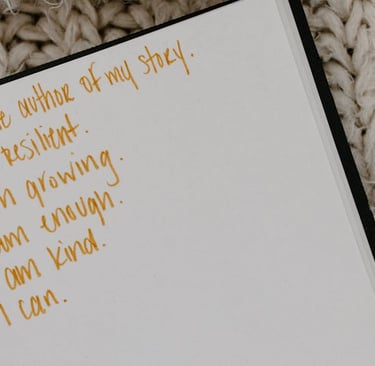 e author of my story.
resilient.
n growing.
am enough.
I am kind.
I can.